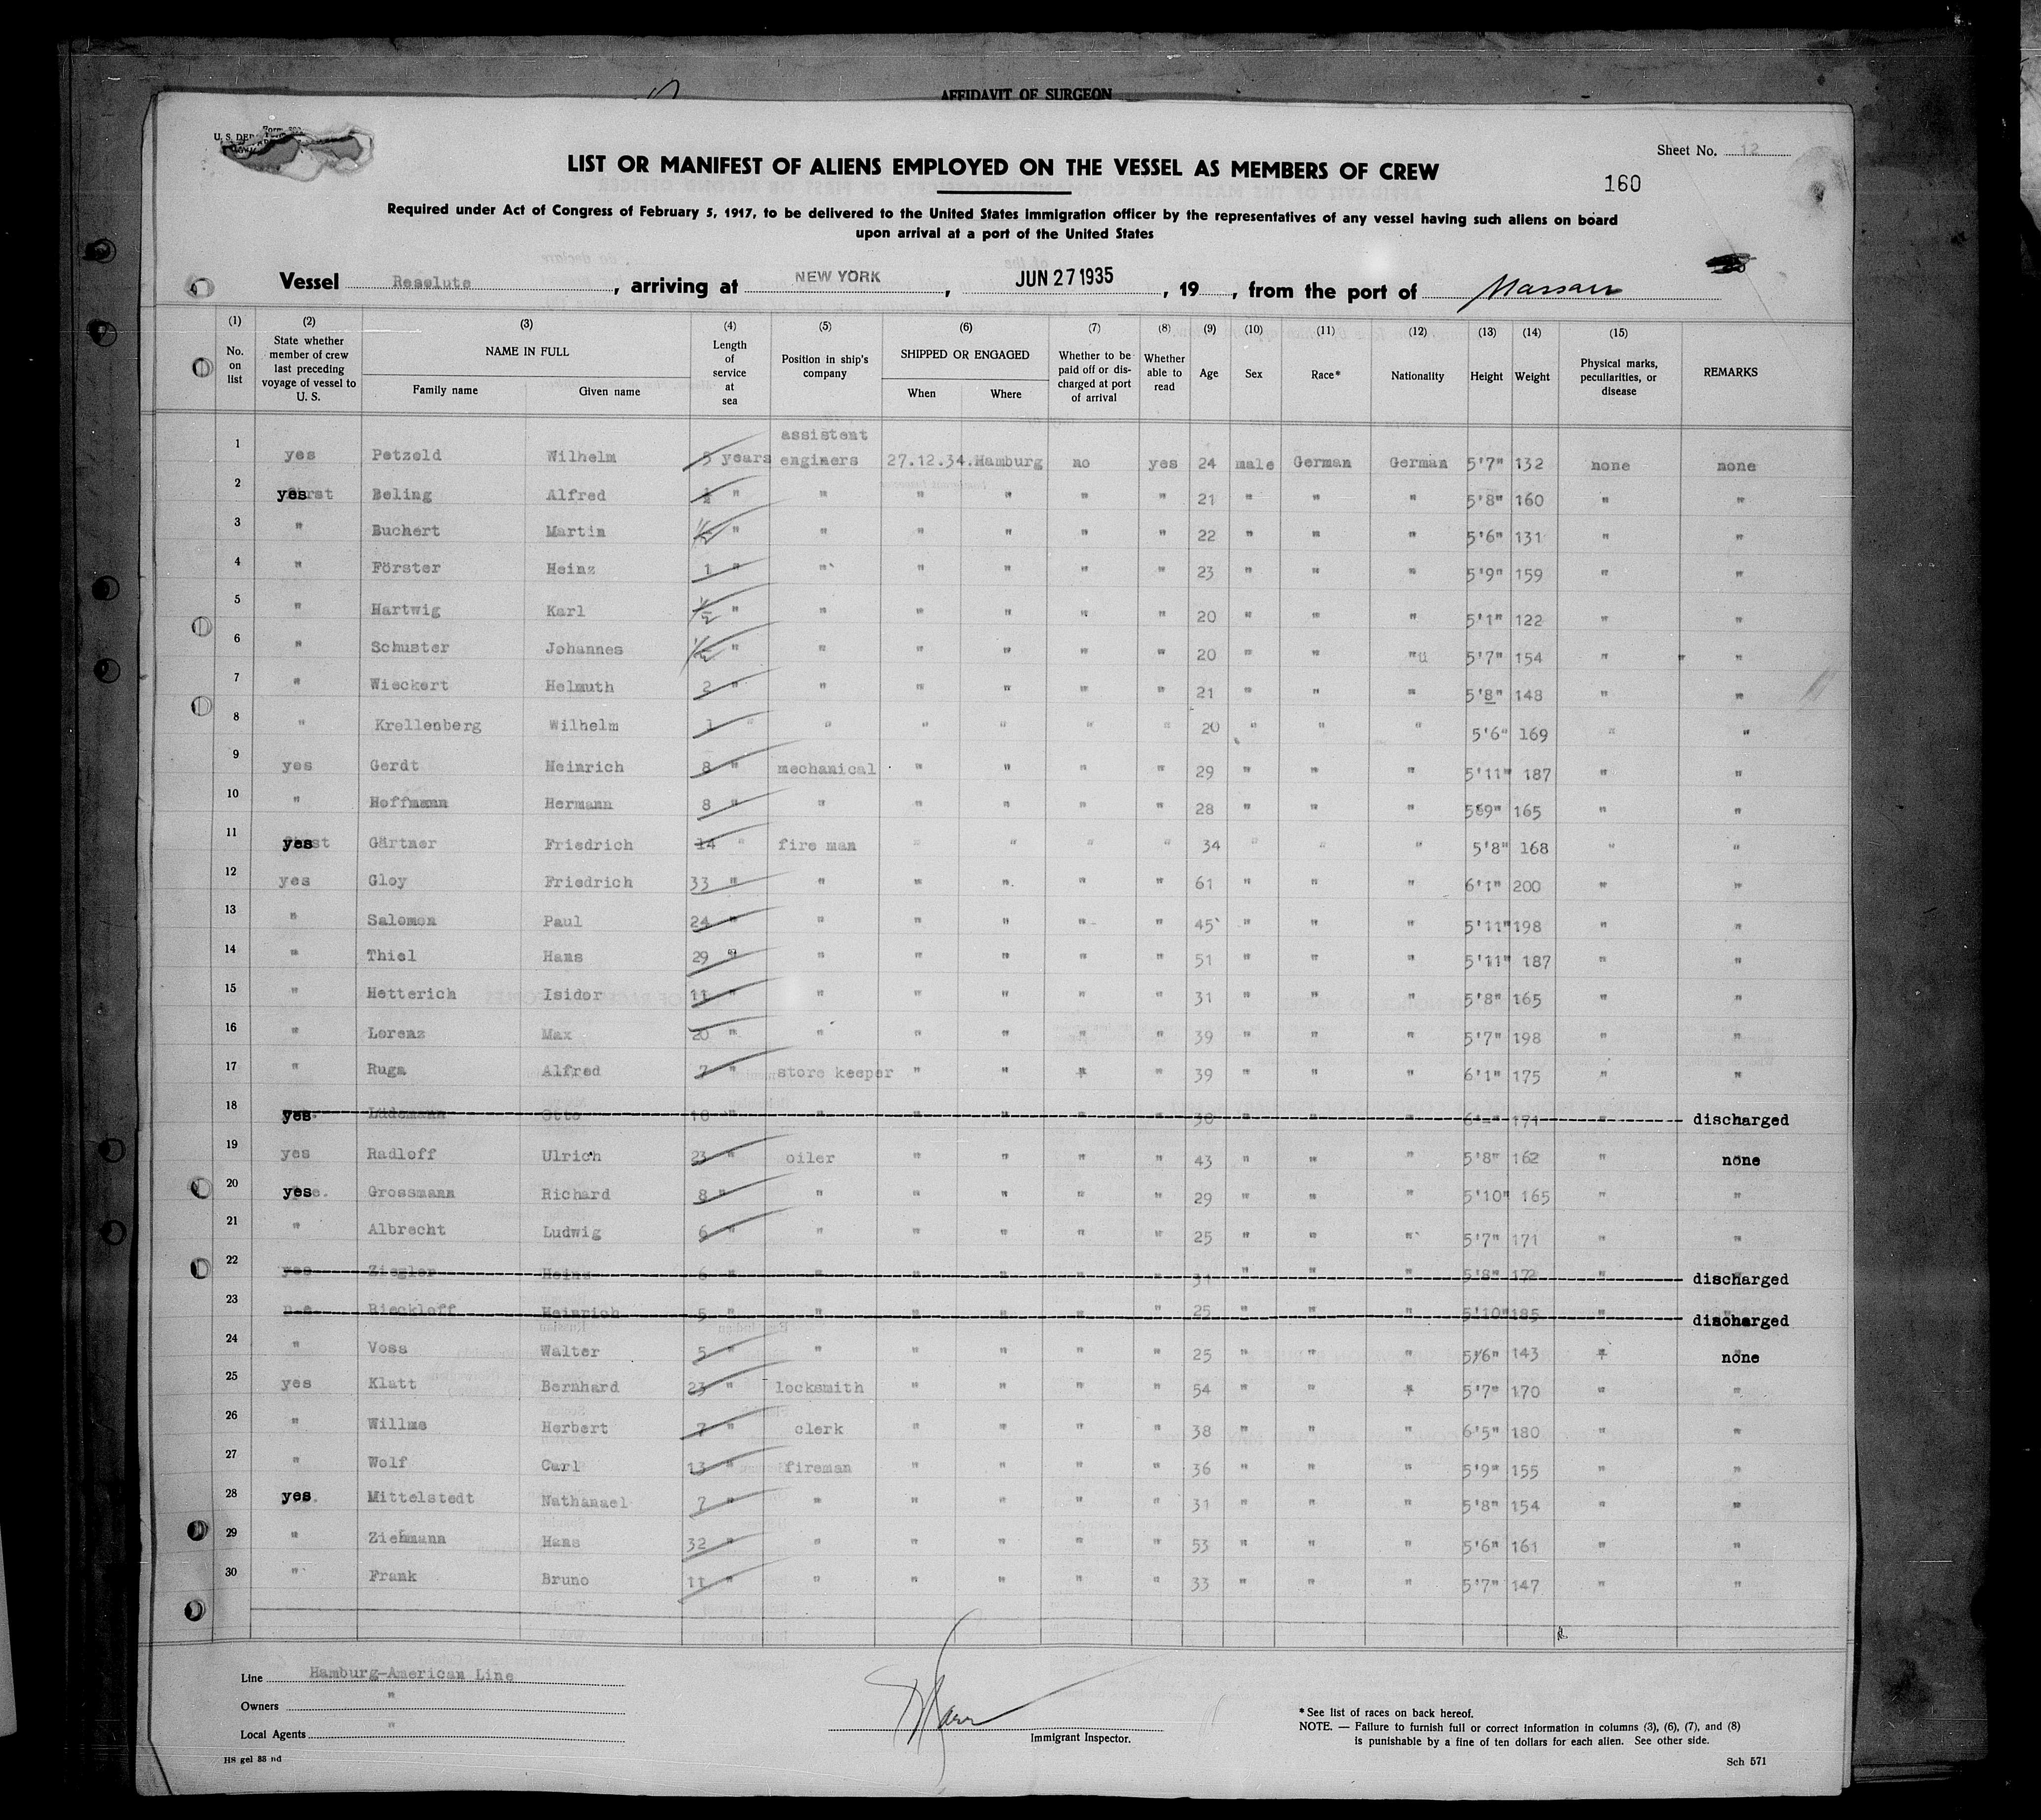 AFFIDAVIT OF SURGEON
U. S. DEP
LIST OR MANIFEST OF ALIENS EMPLOYED ON THE VESSEL AS MEMBERS OF CREW
Sheet No. 12
160
Required under Act of Congress of February 5, 1917, to be delivered to the United States immigration officer by the representatives of any vessel having such aliens on board
upon arrival at a port of the United States
Vessel Resolute, arriving at NEW YORK, JUN 27 1935, 19, from the port of Nassau
(1) (2) (3) (4) (5) (6) (7) (8) (9) (10) (11) (12) (13) (14) (15)
No. on list | State whether member of crew last preceding voyage of vessel to U. S. | NAME IN FULL Family name Given name | Length of service at sea | Position in ship's company | SHIPPED OR ENGAGED When Where | Whether to be paid off or discharged at port of arrival | Whether able to read | Age | Sex | Race* | Nationality | Height | Weight | Physical marks, peculiarities, or disease | REMARKS
1 yes Petzold Wilhelm 5 years assistent enginers 27.12.34. Hamburg no yes 24 male German German 5'7" 132 none none
2 yes Beling Alfred ½ " " " " " " 21 " " " 5'8" 160 " "
3 " Buchert Martin ½ " " " " " " 22 " " " 5'6" 131 " "
4 " Förster Heinz 1 " " " " " " 23 " " " 5'9" 159 " "
5 " Hartwig Karl ½ " " " " " " 20 " " " 5'1" 122 " "
6 " Schuster Johannes ½ " " " " " " 20 " " "ü 5'7" 154 " "
7 " Wieckert Helmuth 2 " " " " " " 21 " " " 5'8" 148 " "
8 " Krellenberg Wilhelm 1 " " " " " " 20 " " " 5'6" 169 " "
9 yes Gerdt Heinrich 8 " mechanical " " " " 29 " " " 5'11" 187 " "
10 " Hoffmann Hermann 8 " " " " " " 28 " " " 5'9" 165 " "
11 yes Gärtner Friedrich 14 " fire man " " " " 34 " " " 5'8" 168 " "
12 yes Gloy Friedrich 33 " " " " " " 61 " " " 6'1" 200 " "
13 " Salomon Paul 24 " " " " " " 45 " " " 5'11" 198 " "
14 " Thiel Hans 29 " " " " " " 51 " " " 5'11" 187 " "
15 " Hetterich Isidor 11 " " " " " " 31 " " " 5'8" 165 " "
16 " Lorenz Max 20 " " " " " " 39 " " " 5'7" 198 " "
17 " Ruga Alfred 7 " store keeper " " " " 39 " " " 6'1" 175 " "
18 yes. Lüdemann Otto 10 " " " " " " 30 " " " 6'-" 171 " discharged
19 yes Radloff Ulrich 23 " oiler " " " " 43 " " " 5'8" 162 " none
20 yes Grossmann Richard 8 " " " " " " 29 " " " 5'10" 165 " "
21 " Albrecht Ludwig 6 " " " " " " 25 " " " 5'7" 171 " "
22 yes Ziegler Heinz 6 " " " " " " 31 " " " 5'8" 172 " discharged
23 n.e. Rieckloff Heinrich 5 " " " " " " 25 " " " 5'10" 185 " discharged
24 " Voss Walter 5 " " " " " " 25 " " " 5'6" 143 " none
25 yes Klatt Bernhard 23 " locksmith " " " " 54 " " " 5'7" 170 " "
26 " Willms Herbert 7 " clerk " " " " 38 " " " 6'5" 180 " "
27 " Wolf Carl 13 " fireman " " " " 36 " " " 5'9" 155 " "
28 yes. Mittelstedt Nathanael 7 " " " " " " 31 " " " 5'8" 154 " "
29 " Ziehmann Hans 32 " " " " " " 53 " " " 5'6" 161 " "
30 " Frank Bruno 11 " " " " " " 33 " " " 5'7" 147 " "
Line Hamburg-American Line
Owners "
Local Agents "
Immigrant Inspector.
* See list of races on back hereof.
NOTE. — Failure to furnish full or correct information in columns (3), (6), (7), and (8)
is punishable by a fine of ten dollars for each alien. See other side.
HS gel 88 nd
Sch 571